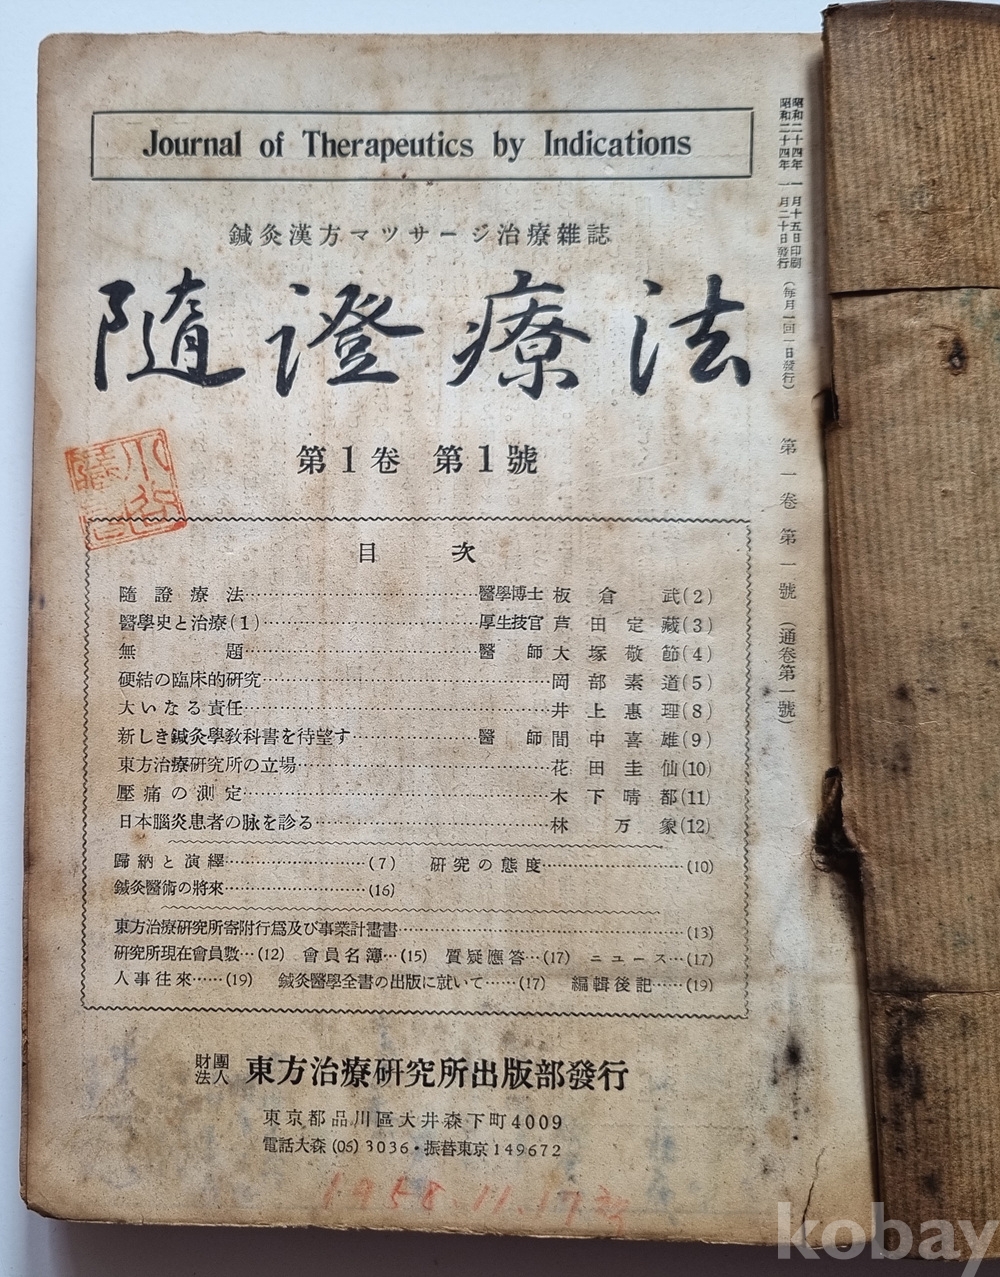 Journal of Therapeutics by Indications
鍼灸漢方マツサージ治療雜誌
隨證療法
第1卷 第1號
昭和二十四年一月十五日印刷
昭和二十四年一月二十日發行
(每月一回一日發行)
第一卷第一號
(通卷第一號)
目次
隨證療法……醫學博士 板倉武(2)
醫學史と治療(1)……厚生技官 芦田定藏(3)
無題……醫師 大塚敬節(4)
硬結の臨床的硏究……岡部素道(5)
大いなる責任……井上惠理(8)
新しき鍼灸學敎科書を待望す……醫師 間中喜雄(9)
東方治療硏究所の立場……花田圭仙(10)
壓痛の測定……木下晴都(11)
日本腦炎患者の脉を診る……林万象(12)
歸納と演繹……(7) 硏究の態度……(10)
鍼灸醫術の將來……(16)
東方治療硏究所寄附行爲及び事業計畫書……(13)
硏究所現在會員數…(12) 會員名簿…(15) 質疑應答…(17) ニュース…(17)
人事往來……(19) 鍼灸醫學全書の出版に就いて……(17) 編輯後記……(19)
財團法人 東方治療硏究所出版部發行
東京都品川區大井森下町4009
電話大森 (05) 3036・振替東京149672
1958.11.17
kobay